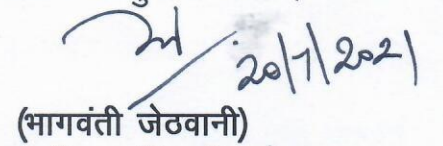 20/7/2021
(भागवंती जेठवानी)